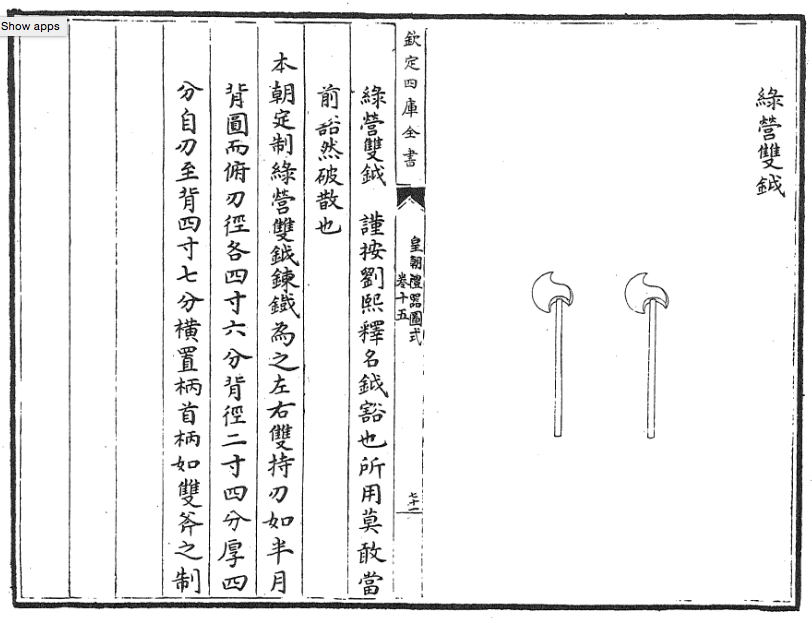 Show apps
綠營雙鉞
欽定四庫全書
皇朝禮器圖式
卷十五
七十一
綠營雙鉞 謹按劉熙釋名鉞豁也所用莫敢當
前豁然破散也
本朝定制綠營雙鉞鍊鐡為之左右雙持刃如半月
背圓而俯刃徑各四寸六分背徑二寸四分厚四
分自刃至背四寸七分橫置柄首柄如雙斧之制